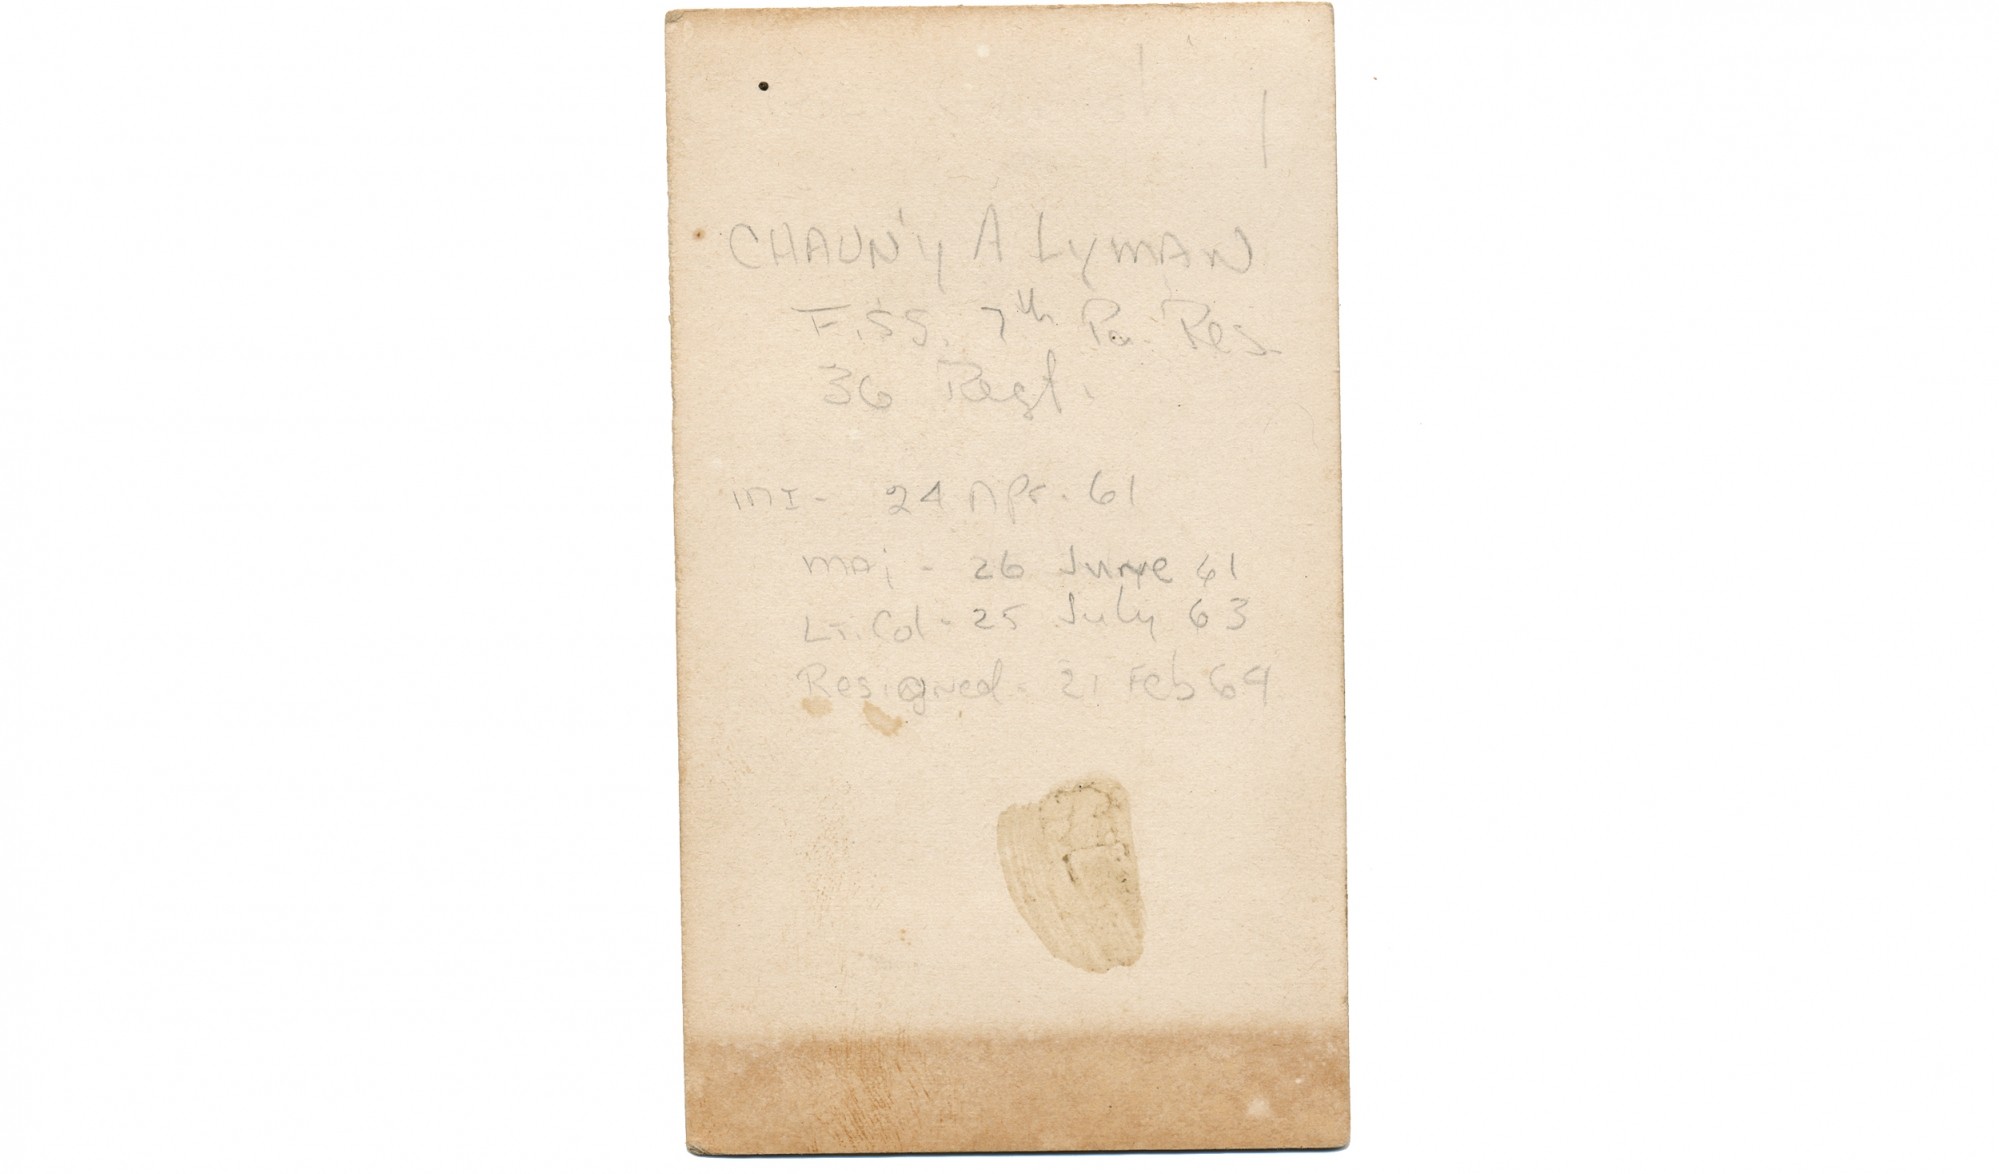 CHAUN'y A LymAN
F.SS. 7th Pa. Res.
36 Regt.
MI - 24 Apr. 61
MAj - 26 June 61
LT. Col - 25 July 63
Resigned - 21 Feb 64